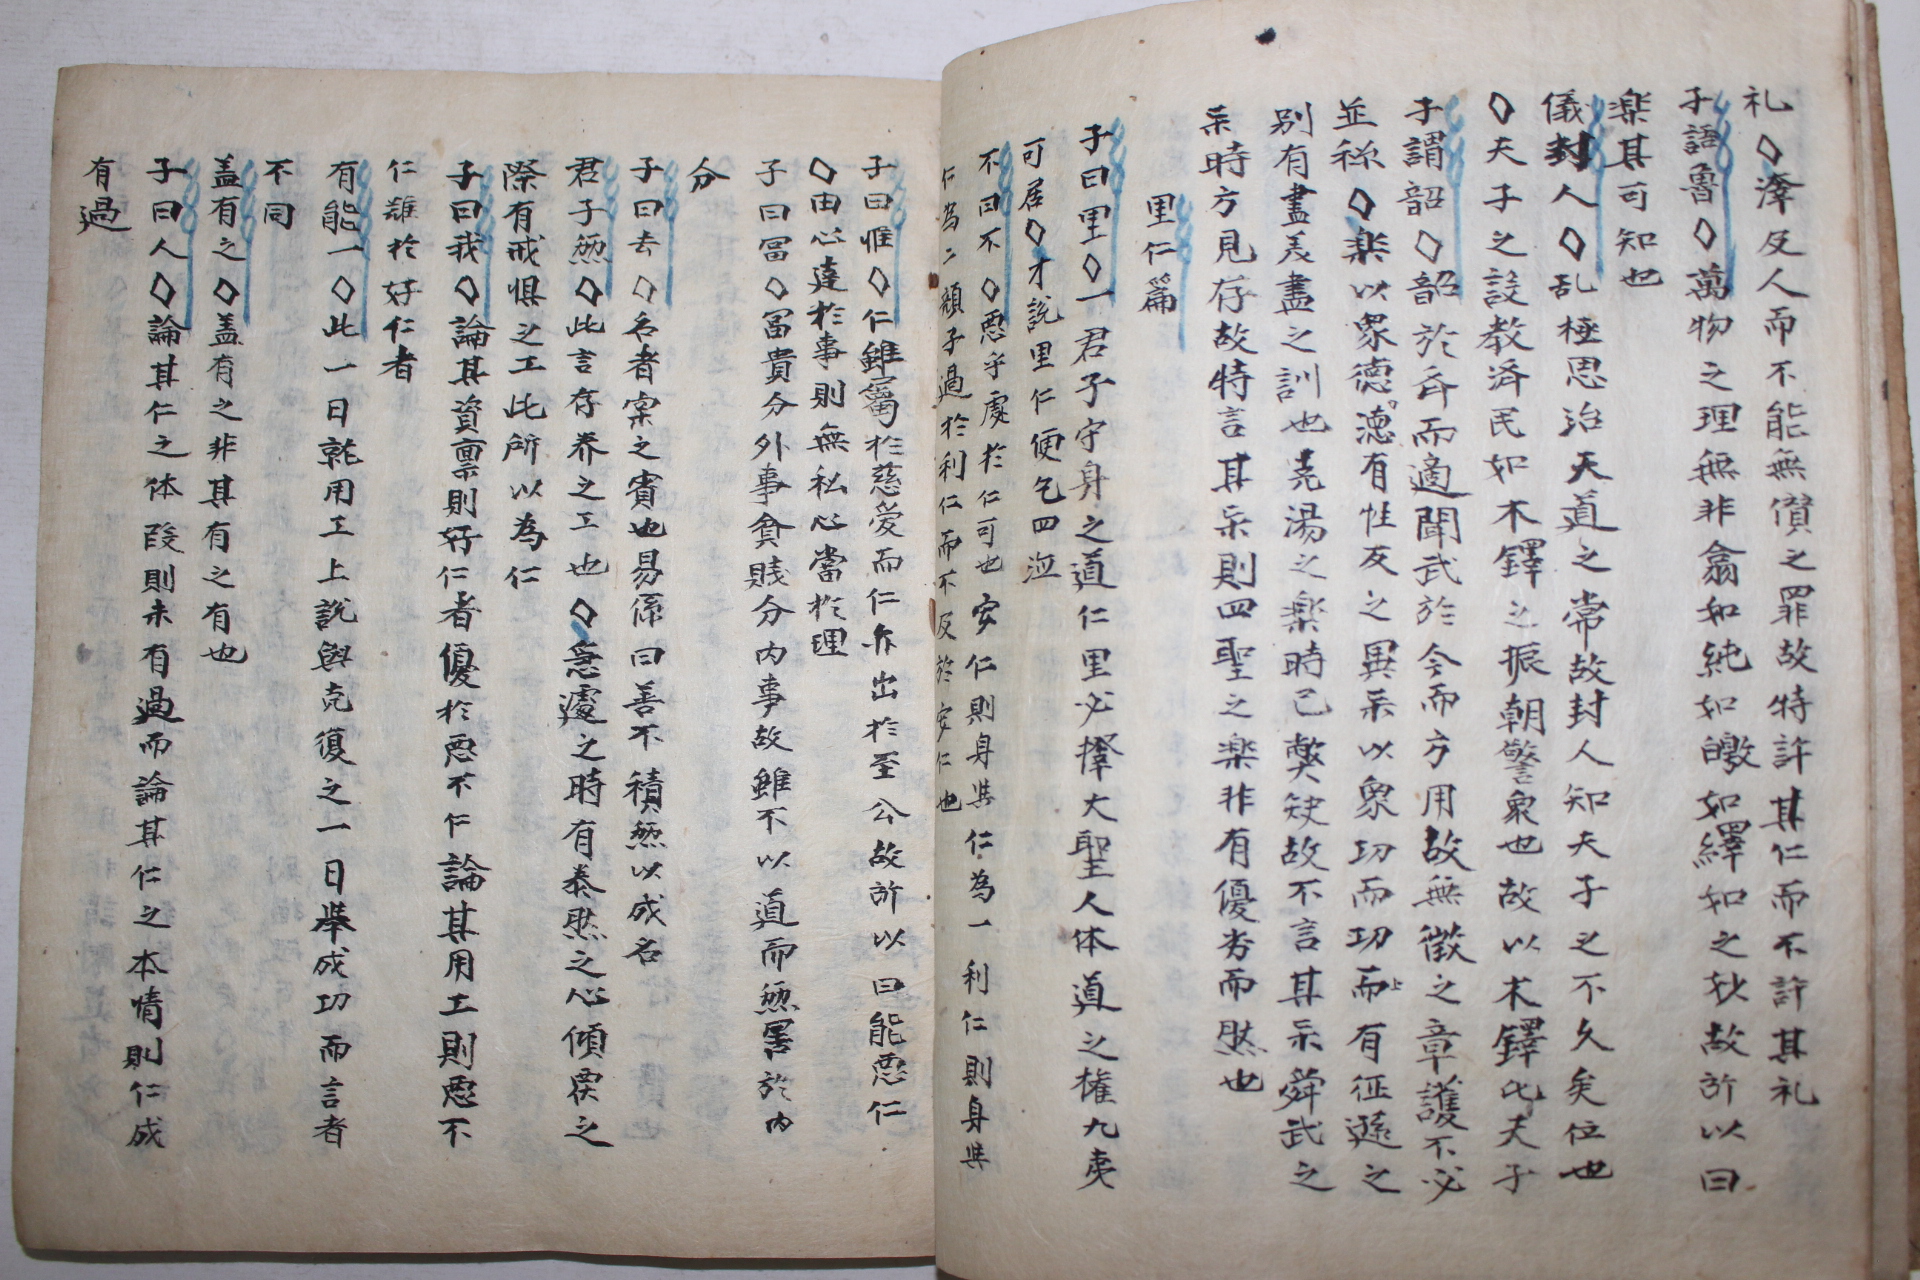 礼◇澤及人而不能無償之罪故特許其仁而不許其礼
子語魯◇萬物之理無非翕如純如皦如繹如之故所以曰
楽其可知也
儀封人◇乱極思治天道之常故封人知夫子之不久矣位也
◇夫子之設教済民如木鐸之振朝警衆也故以木鐸比夫子
子謂韶◇韶於斉而適聞武於今而方用故無徴之章護不必
並称◇楽以象德德有性反之異楽以象功而功而上有征遜之
別有盡美盡之訓也堯湯之楽時已㢢缺故不言其楽舜武之
楽時方見存故特言其楽則四聖之楽非有優劣而然也
里仁篇
子曰里◇一君子守身之道仁里必擇大聖人体道之権九夷
可居◇才說里仁便包四泣
不曰不◇惡乎處於仁可也安仁則身與仁為一利仁則身與
仁為二顔子過於利仁而不及於安仁也
子曰惟◇仁雖屬於慈愛而仁亦出於至公故所以曰能惡仁
◇由心達於事則無私心當於理
子曰冨◇冨貴分外事貧賎分内事故雖不以道而㷼害於内
分
子曰去◇名者宲之賓也易係曰善不積㷼以成名
君子㷼◇此言存养之工也◇急遽之時有泰然之心傾戻之
際有戒惧之工此所以為仁
子曰我◇論其資禀則好仁者優於惡不仁論其用工則惡不
仁難於好仁者
有能一◇此一日就用工上說與克復之一日舉成功而言者
不同
盖有之◇盖有之非其有之有也
子曰人◇論其仁之体段則未有過而論其仁之本情則仁成
有過